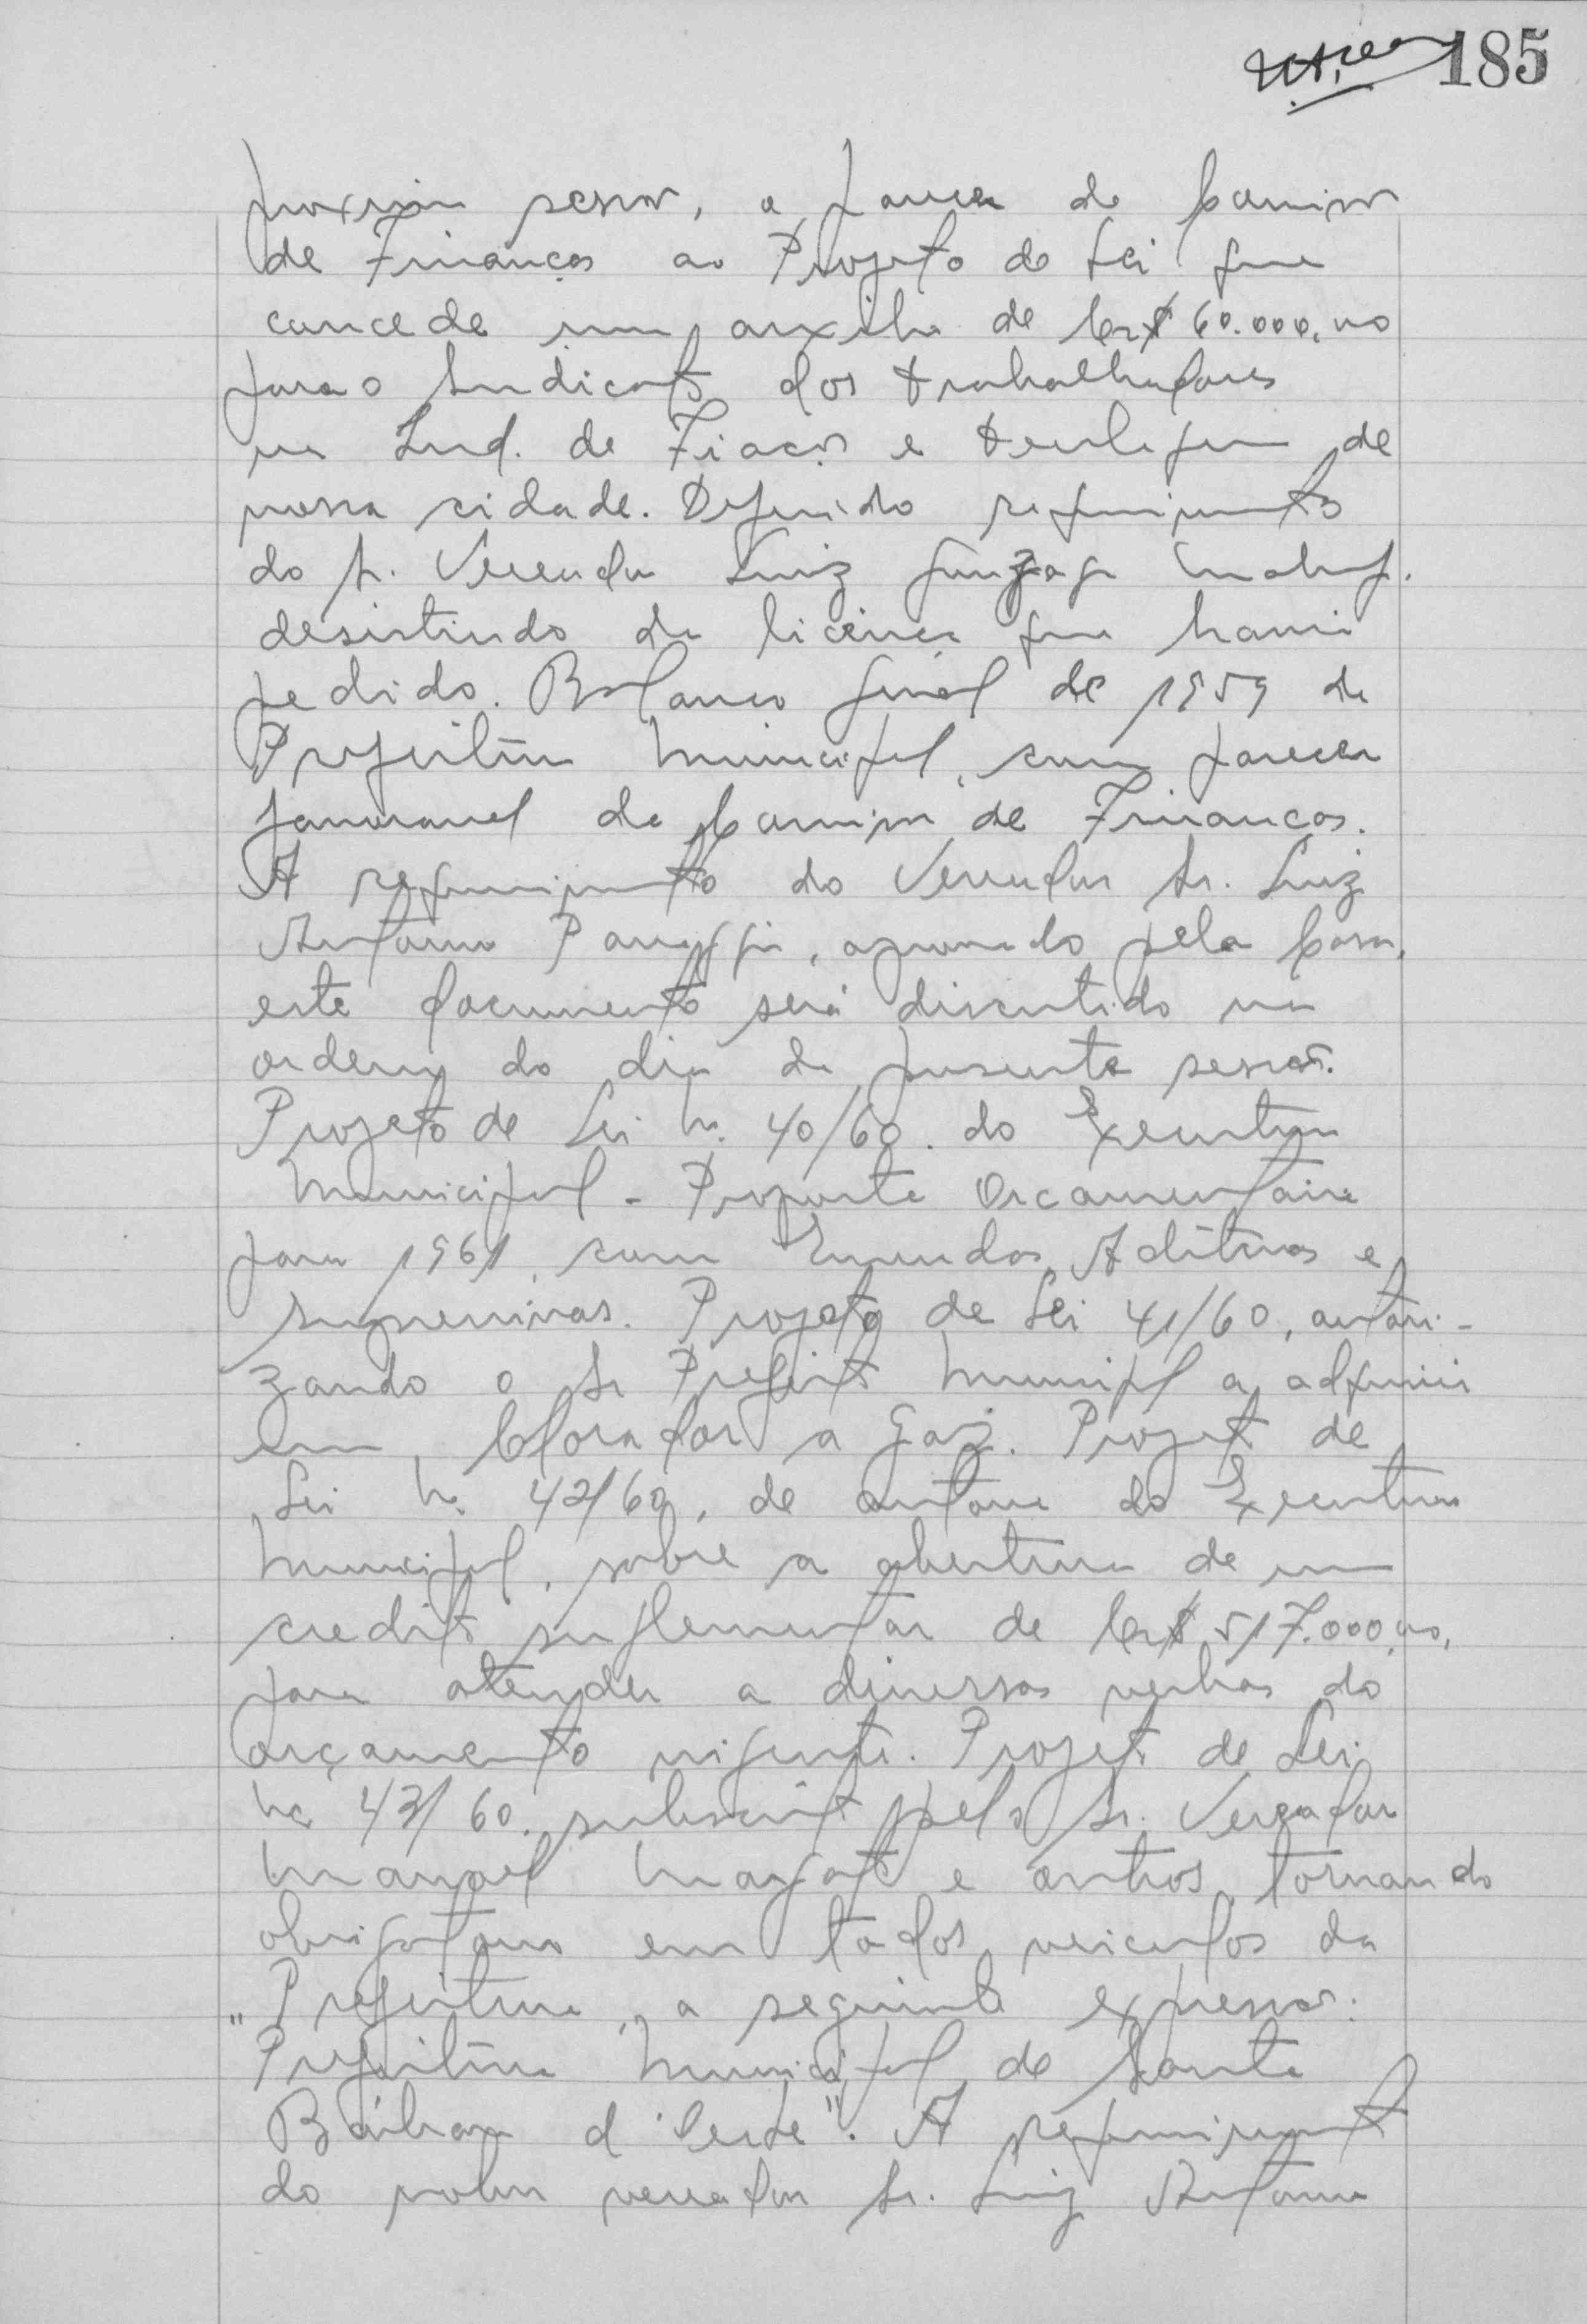 185
proxima sessão, o parecer da Comissão
de Finanças ao Projeto de Lei que
concede um auxilio de Cr$ 60.000,00
para o Sindicato dos trabalhadores
na Ind. de Fiação e tecelagem de
nossa cidade. Deferido requerimento
do Sr. Vereador Luiz Gonzaga
desistindo da licença que havia
pedido. Balanço geral de 1959 da
Prefeitura Municipal, com parecer
favoravel da Comissão de Finanças.
A requerimento do Vereador Sr. Luiz
Antonio Panaggio, aprovado pela Casa,
este documento será discutido na
ordem do dia da presente sessão.
Projeto de Lei no. 40/60. do Executivo
Municipal - Proposta Orçamentaria
para 1961, com Emendas Aditivas e
supressivas. Projeto de Lei 41/60, autori-
zando o Sr Prefeito Municipal a adquirir
um Clorador a Gaz. Projeto de
Lei no. 42/60, de autoria do Executivo
Municipal, sobre a abertura de um
credito suplementar de Cr$ 517.000,00,
para atender a diversas verbas do
orçamento vigente. Projeto de Lei
no 43/60, subscrito pelo Sr. Vereador
Manoel e outros, tornando
obrigatorio em todos veiculos da
Prefeitura, a seguinte expressão:
"Prefeitura Municipal de Santa
Bárbara d'Oeste". A requerimento
do nobre vereador Sr. Luiz Antonio